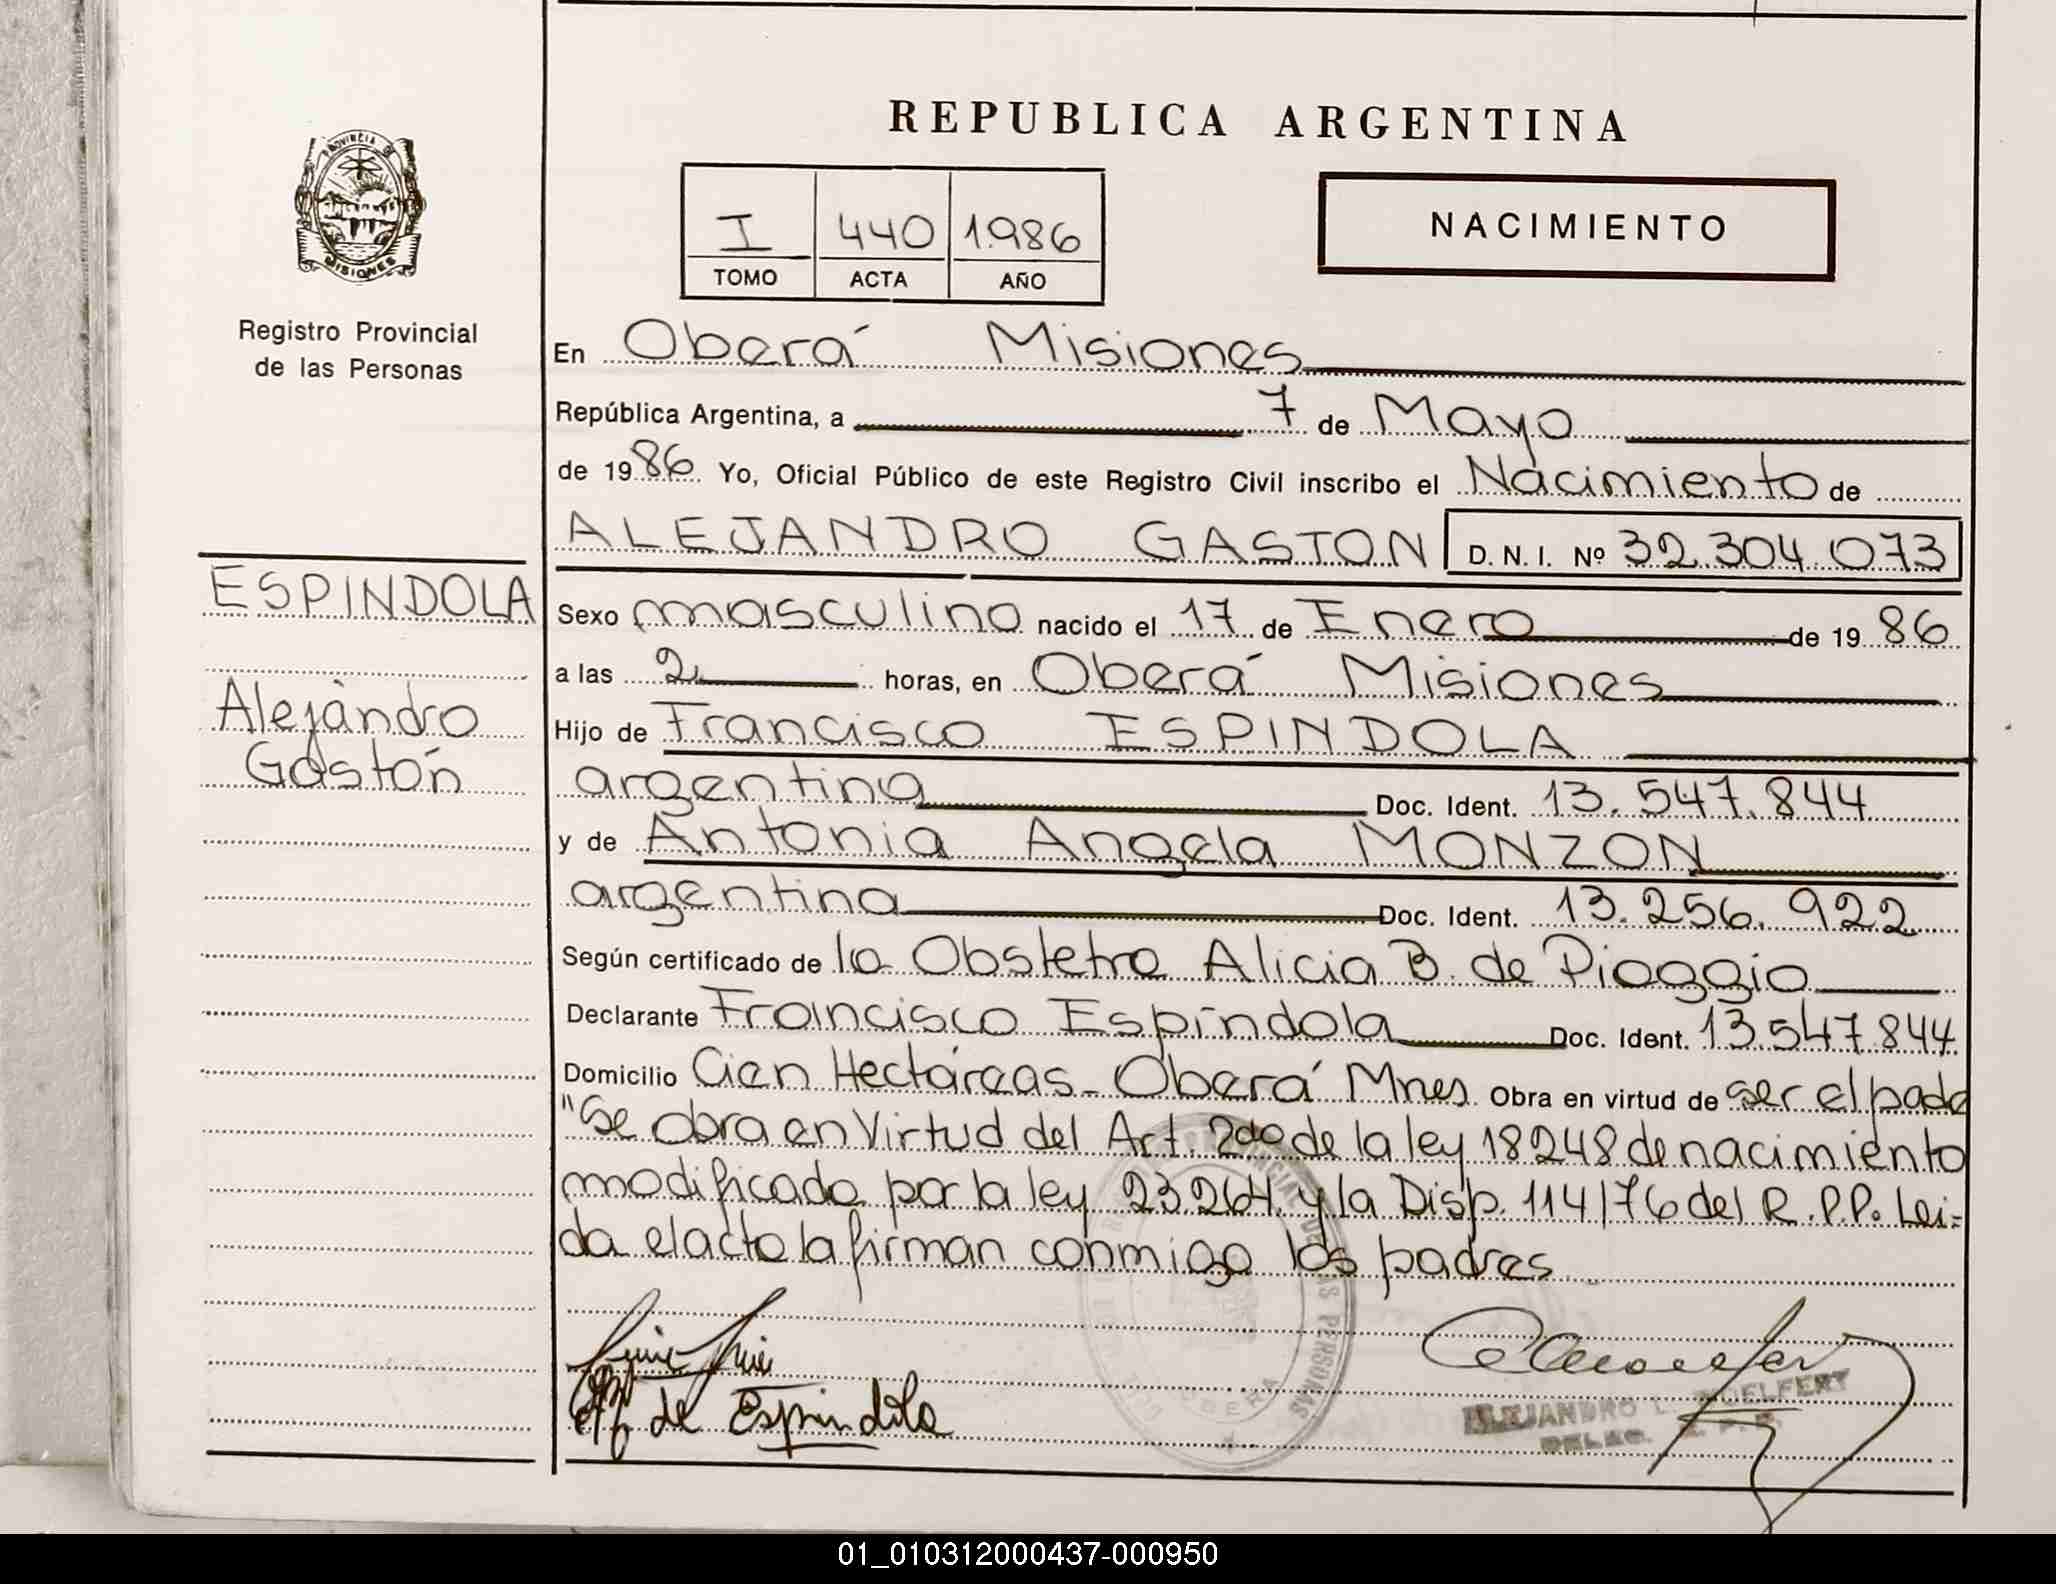 REPUBLICA ARGENTINA
PROVINCIA DE
MISIONES
Registro Provincial
de las Personas
I 440 1986
TOMO ACTA AÑO
NACIMIENTO
En Oberá Misiones
República Argentina, a 7 de Mayo
de 1986 Yo, Oficial Público de este Registro Civil inscribo el Nacimiento de
ALEJANDRO GASTON D. N. I. Nº 32.304.073
ESPINDOLA
Alejandro
Gastón
Sexo masculino nacido el 17 de Enero de 1986
a las 2 horas, en Oberá Misiones
Hijo de Francisco ESPINDOLA
argentina Doc. Ident. 13.547.844
y de Antonia Angela MONZON
argentina Doc. Ident. 13.256.922
Según certificado de la Obstetra Alicia B. de Pioggio
Declarante Francisco Espíndola Doc. Ident. 13.547.844
Domicilio Cien Hectáreas - Oberá Mnes Obra en virtud de ser el padre
"Se obra en Virtud del Art. 2do de la ley 18248 de nacimiento
modificado por la ley 23.264 y la Disp. 114/76 del R.P.P. Lei=
da el acto la firman conmigo los padres
de Espindola
ALEJANDRO L.
DELEG.
PROVINCIAL DE LAS PERSONAS
OBERA
01_010312000437-000950